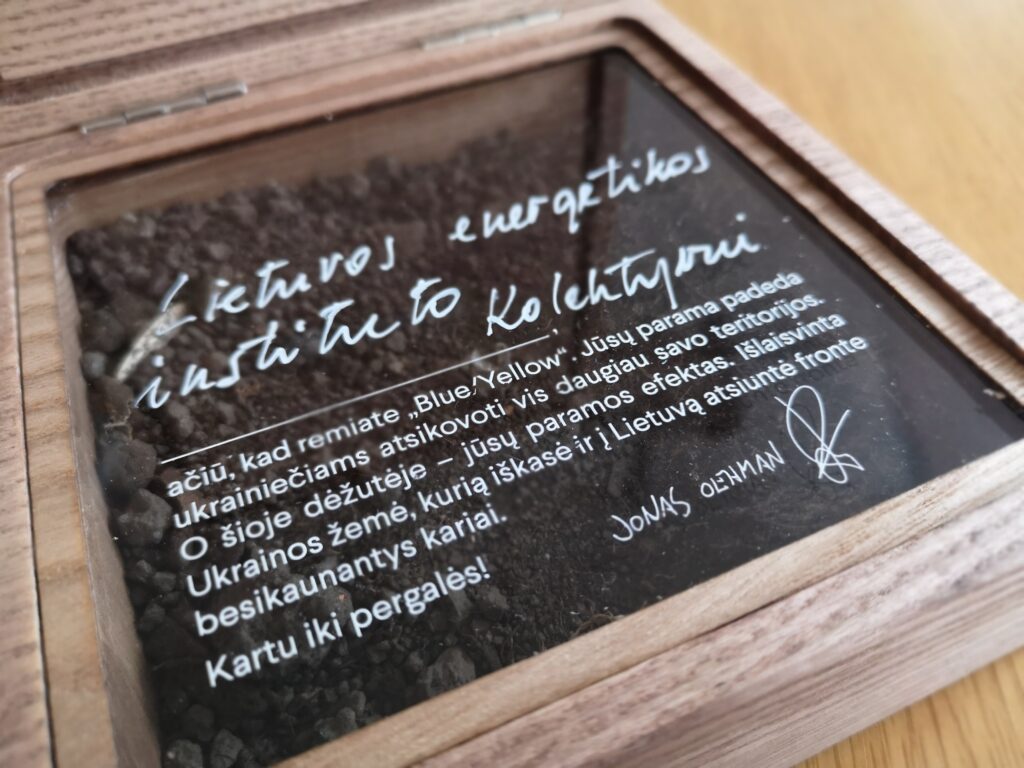 Lietuvos energetikos
instituto kolektyvui
ačiū, kad remiate „Blue/Yellow“. Jūsų parama padeda
ukrainiečiams atsikovoti vis daugiau savo teritorijos.
O šioje dėžutėje – jūsų paramos efektas. Išlaisvinta
Ukrainos žemė, kurią iškasė ir į Lietuvą atsiuntė fronte
besikaunantys kariai.
Kartu iki pergalės!
JONAS OEHMAN